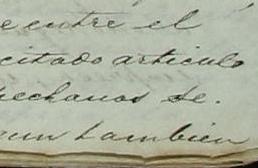 e entre el
citado articulo
pechanos se.
un tambien